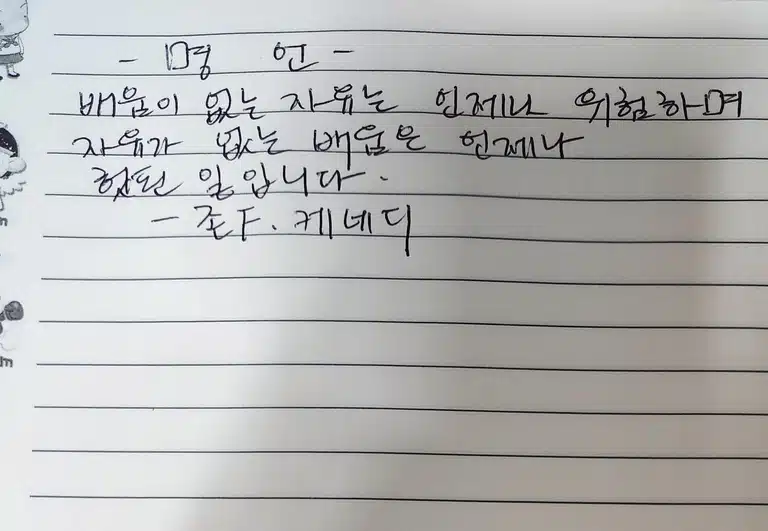 - 명 언 -
배움이 없는 자유는 언제나 위험하며
자유가 없는 배움은 언제나
헛된 일입니다.
- 존F. 케네디